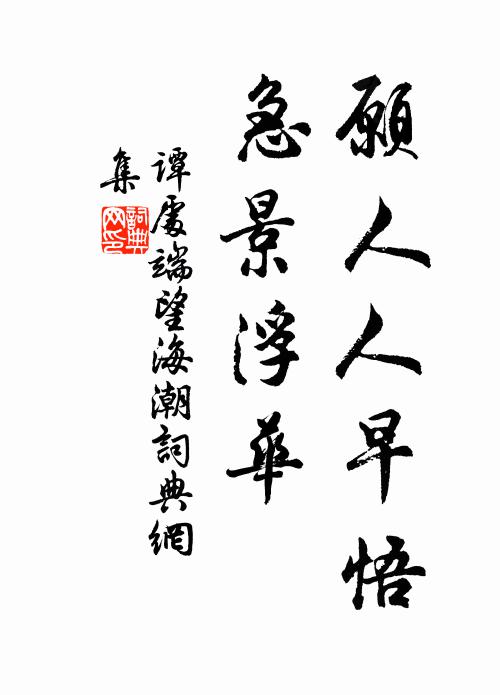 願人人早悟
急景浮華
譚處端望海潮詞典網
集
詞典網印